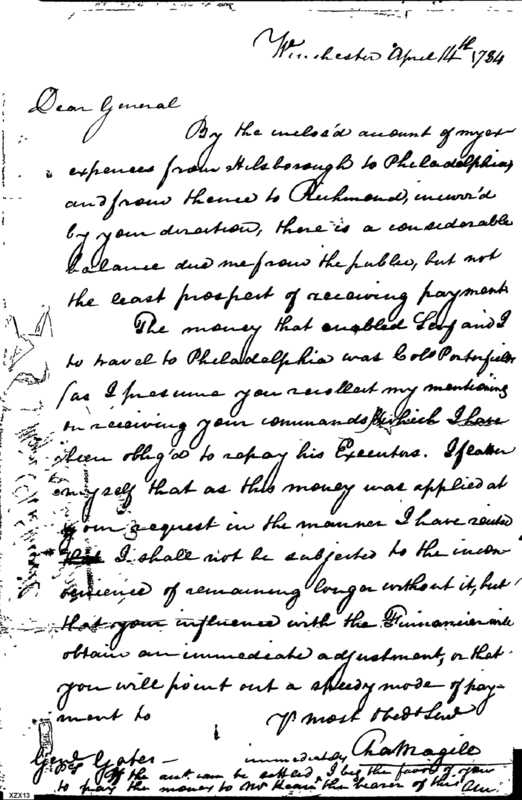 Winchester April 14th 1784
Dear General
By the inclos'd account of my ex
expences from Hilsborough to Philadelphia,
and from thence to Richmond, incurr'd
by your direction, there is a considerable
balance due me from the public, but not
the least prospect of receiving payment
The money that enabled and I
to travel to Philadelphia was Colo Porterfields
(as I presume you recollect my mentioning
on receiving your commands) which I have
been oblig'd to repay his Executors. I flatter
myself that as this money was applied at
your request in the manner I have recited
that I shall not be subjected to the incon
venience of remaining longer without it, but
that your influence with the Finnancier will
obtain an immediate adjustment, or that
you will point out a speedy mode of pay-
ment to Yr most Obedt Servt
Genl Gates - Cha Magill
Ps If the acct can be settled immediately I beg the favor of you
to pay the money to Mr the bearer of this
XZX13